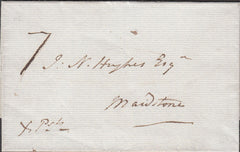 7
J. N. Hughes Esqr
Maidstone